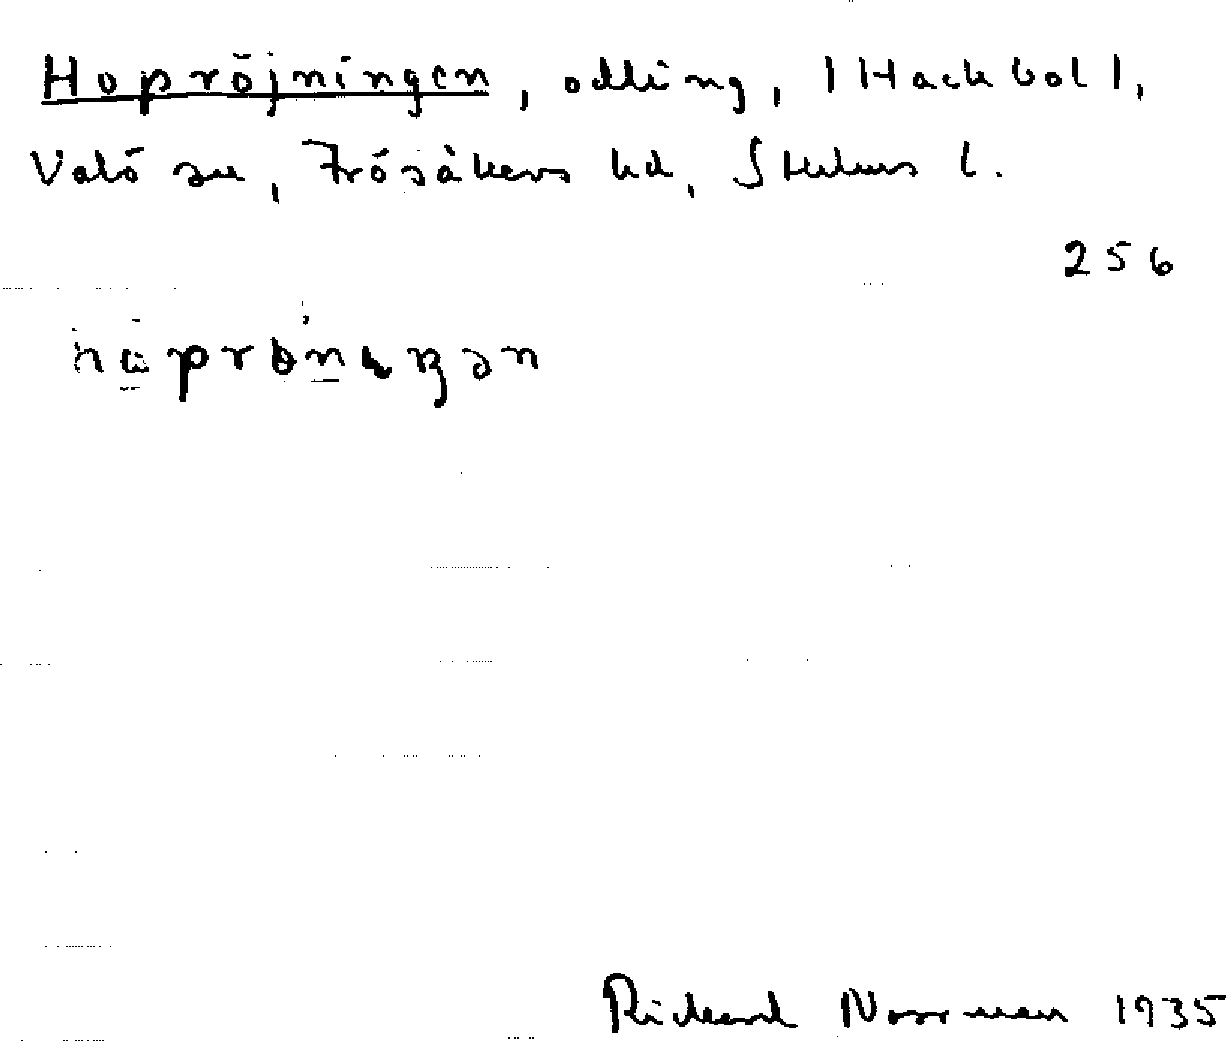 Hopröjningen, odling, 1 Hackbol 1,
Valö sn, Frösåkers hd, Sthlms l.
256
Rickard Norrman 1935